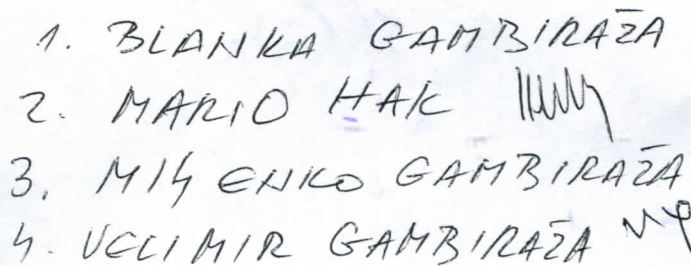 1. BLANKA GAMBIRAŽA
2. MARIO HAK
3. MILJENKO GAMBIRAŽA
4. VELIMIR GAMBIRAŽA